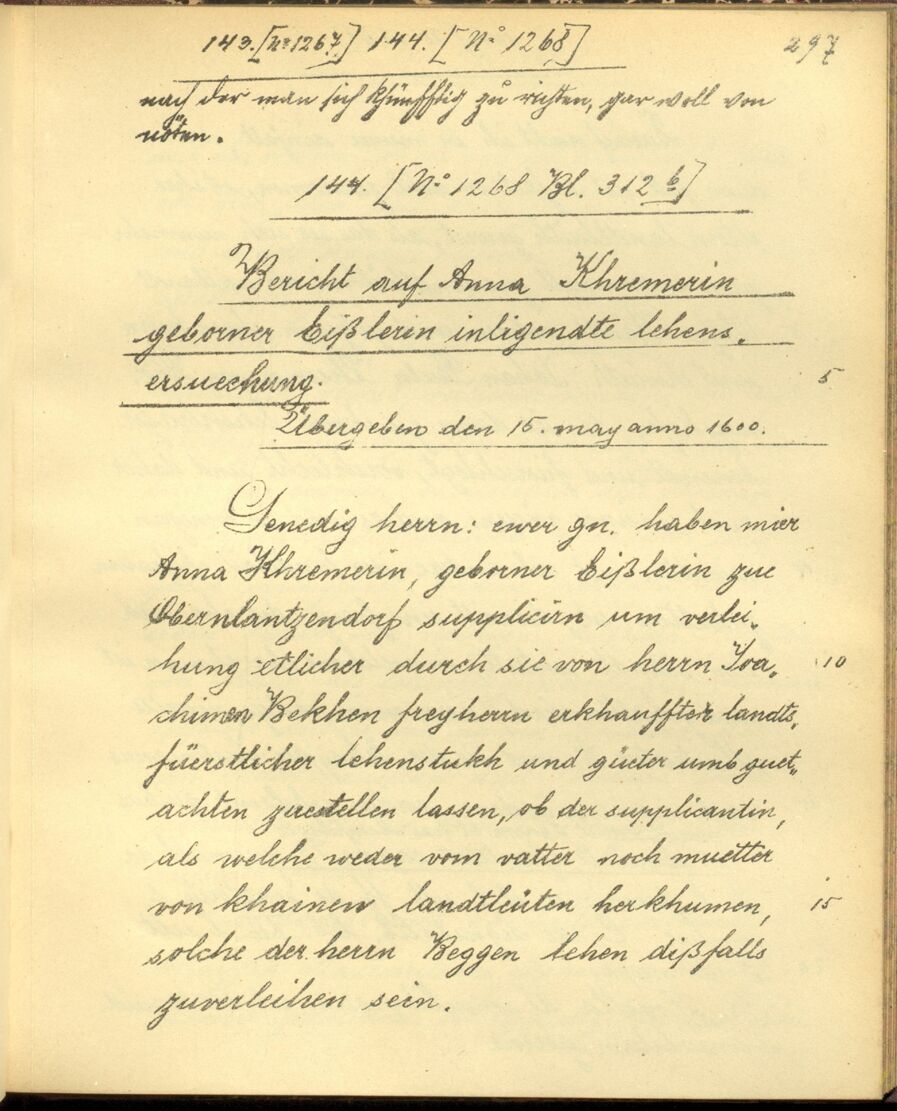 143. [No 1267] 144. [No 1268]
297
nach der man sich khünfftig zu richten, gar woll von
nöten.
144. [No 1268 Bl. 312 b]
Bericht auf Anna Khremerin
geborner Eißlerin inligendte lehens„
ersuechung.
5
Übergeben den 15. may anno 1600.
Genedig herrn: ewer gn. haben mier
Anna Khremerin, geborner Eißlerin zue
Obernlantzendorf supplicirn um verlei„
hung etlicher durch sie von herrn Joa„
10
chimen Bekhen freyherrn erkhauffter landts„
füerstlicher lehenstukh und güeter umb guet„
achten zuestellen lassen, ob der supplicantin,
als welche weder vom vatter noch muetter
von khainen landtleüten herkhumen,
15
solche der herrn Beggen lehen dißfalls
zuverleihen sein.